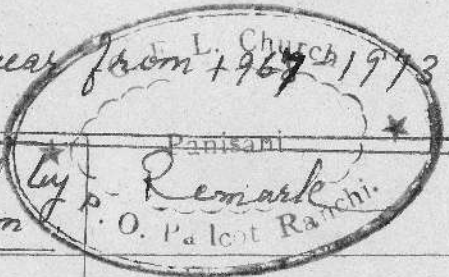 year from 1967-1973
E. L. Church
Panisani
by Remark
P. O. Palcot Ranchi.